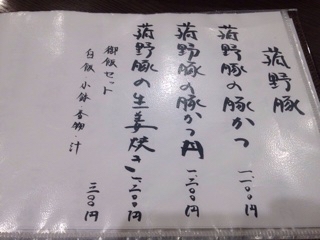 菰野豚
菰野豚の豚かつ 一、一〇〇円
菰野豚の豚かつ丼 一、二〇〇円
菰野豚の生姜焼き 一、二〇〇円
御飯セット
白飯 小鉢 香物・汁 三〇〇円